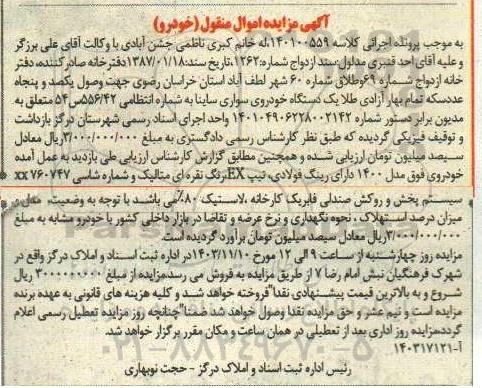 آگهی مزایده اموال منقول (خودرو)
به موجب پرونده اجرائی کلاسه ۱۴۰۱۰۰۵۵۹ له خانم کبری ناظمی جشن آبادی با وکالت آقای علی برزگر
و علیه آقای احد قنبری مدلول سند ازدواج شماره:۱۲۶۲، تاریخ سند:۱۳۸۷/۰۱/۱۸، دفترخانه صادرکننده، دفتر
خانه ازدواج شماره ۶۹ وطلاق شماره ۶۰ شهر لطف آباد استان خراسان رضوی جهت وصول یکصد و پنجاه
عددسکه تمام بهار آزادی طلا یک دستگاه خودروی سواری ساینا به شماره انتظامی ۵۵۶/۴۲س۵۴ متعلق به
مدیون برابر دستور شماره ۱۴۰۱۰۴۹۰۶۲۲۸۰۰۲۱۴۲ واحد اجرای اسناد رسمی شهرستان درگز بازداشت
و توقیف فیزیکی گردیده که طبق نظر کارشناس رسمی دادگستری به مبلغ ۳/۰۰۰/۰۰۰/۰۰۰ریال معادل
سیصد میلیون تومان ارزیابی شده و همچنین مطابق گزارش کارشناس ارزیابی طی بازدید به عمل آمده
خودروی فوق مدل ۱۴۰۰ دارای رینگ فولادی، تیپ EX، رنگ نقره ای متالیک و شماره شاسی ۷۶۰۷۴۷ xx
سیستم پخش و روکش صندلی فابریک کارخانه ،لاستیک ۸۰٪می باشد با توجه به وضعیت، مدل و
میزان درصد استهلاک ، نحوه نگهداری و نرخ عرضه و تقاضا در بازار داخلی کشور با خودرو مشابه به مبلغ
۳/۰۰۰/۰۰۰/۰۰۰ریال معادل سیصد میلیون تومان برآورد گردیده است.
مزایده روز چهارشنبه از ساعت ۹ الی ۱۲ مورخ ۱۴۰۳/۱۱/۱۰ در اداره ثبت اسناد و املاک درگز واقع در
شهرک فرهنگیان نبش امام رضا ۷ از طریق مزایده به فروش می رسد.مزایده از مبلغ ۳۰۰۰۰۰۰۰۰۰ ریال
شروع و به بالاترین قیمت پیشنهادی نقدا" فروخته خواهد شد و کلیه هزینه های قانونی به عهده برنده
مزایده است و نیم عشر و حق مزایده نقدا وصول خواهد شد ضمنا" چنانچه روز مزایده تعطیل رسمی اعلام
گردد،مزایده روز اداری بعد از تعطیلی در همان ساعت و مکان مقرر برگزار خواهد شد.
آ-۱۴۰۳۱۷۱۲۱
رئیس اداره ثبت اسناد و املاک درگز - حجت نوبهاری
۰۲۱-۸۸۳۴۹۶۷۰-۵